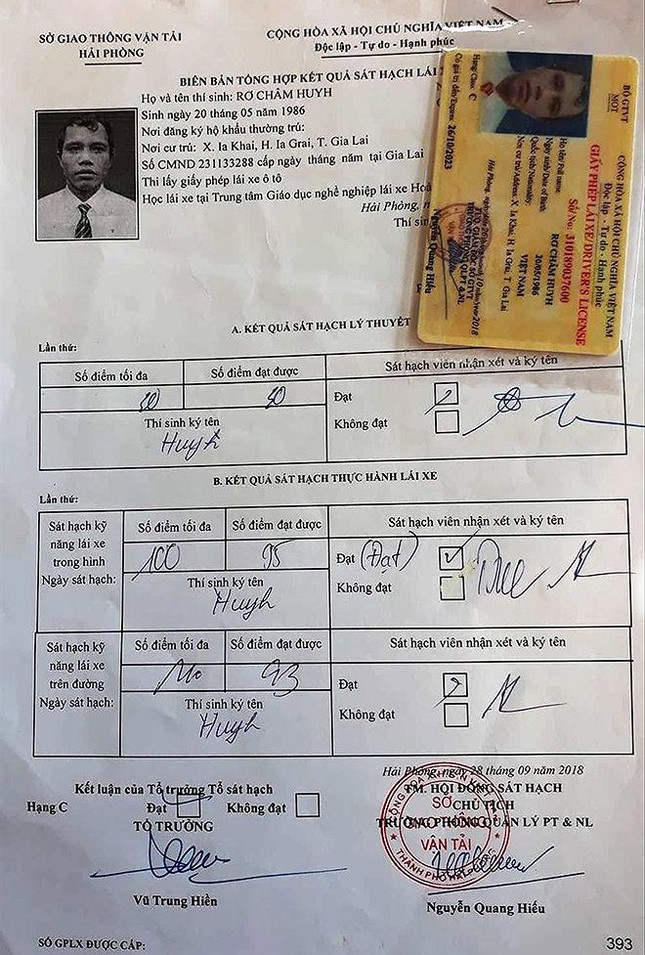 SỞ GIAO THÔNG VẬN TẢI
HẢI PHÒNG
CỘNG HÒA XÃ HỘI CHỦ NGHĨA VIỆT NAM
Độc lập - Tự do - Hạnh phúc
BIÊN BẢN TỔNG HỢP KẾT QUẢ SÁT HẠCH LÁI
Họ và tên thí sinh: RƠ CHÂM HUYH
Sinh ngày 20 tháng 05 năm 1986
Nơi đăng ký hộ khẩu thường trú:
Nơi cư trú: X. Ia Khai, H. Ia Grai, T. Gia Lai
Số CMND 231133288 cấp ngày tháng năm tại Gia Lai
Thi lấy giấy phép lái xe ô tô
Học lái xe tại Trung tâm Giáo dục nghề nghiệp lái xe Hoà
Hải Phòng, n
Thí sin
BỘ GTVT
MOT
CỘNG HÒA XÃ HỘI CHỦ NGHĨA VIỆT NAM
Độc lập - Tự do - Hạnh phúc
GIẤY PHÉP LÁI XE/DRIVER'S LICENSE
Số/No: 310189037600
Họ tên/Full name: RƠ CHÂM HUYH
Ngày sinh/Date of Birth: 20/05/1986
Quốc tịch/Nationality: VIỆT NAM
Nơi cư trú/Address: X. Ia Khai, H. Ia Grai, T. Gia Lai
Hạng/Class: C
Có giá trị đến/Expires: 26/10/2023
Nguyễn Quang Hiếu
A. KẾT QUẢ SÁT HẠCH LÝ THUYẾT
Lần thứ:
Số điểm tối đa Số điểm đạt được Sát hạch viên nhận xét và ký tên
Đạt
Không đạt
Thí sinh ký tên
Huyh
B. KẾT QUẢ SÁT HẠCH THỰC HÀNH LÁI XE
Lần thứ:
Sát hạch kỹ năng lái xe trong hình
Ngày sát hạch:
Số điểm tối đa Số điểm đạt được Sát hạch viên nhận xét và ký tên
100 95
Đạt (Đạt)
Không đạt
Thí sinh ký tên
Huyh
Sát hạch kỹ năng lái xe trên đường
Ngày sát hạch:
Số điểm tối đa Số điểm đạt được Sát hạch viên nhận xét và ký tên
93
Đạt
Không đạt
Thí sinh ký tên
Huyh
Hải Phòng, ngày 28 tháng 09 năm 2018
Kết luận của Tổ trưởng Tổ sát hạch
Hạng C Đạt Không đạt
TỔ TRƯỞNG
Vũ Trung Hiền
TM. HỘI ĐỒNG SÁT HẠCH
CHỦ TỊCH
TRƯỞNG PHÒNG QUẢN LÝ PT & NL
SỞ
GIAO THÔNG
VẬN TẢI
Nguyễn Quang Hiếu
SỐ GPLX ĐƯỢC CẤP:
393